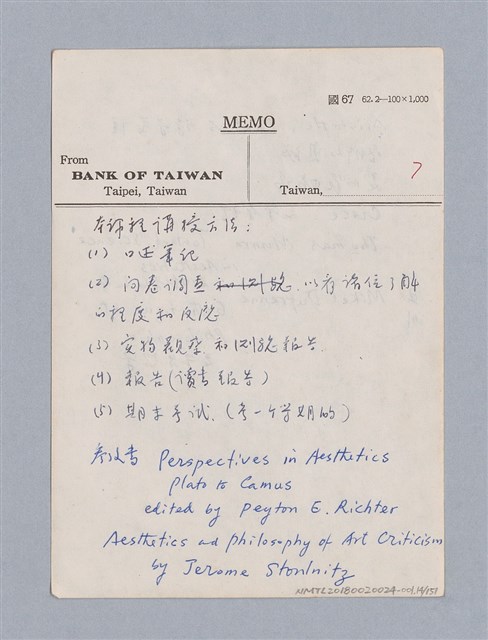 國 67 62.2—100×1,000
MEMO
From
BANK OF TAIWAN
Taipei, Taiwan
Taiwan,
7
本課程講授方法：
(1) 口述筆記
(2) 问卷調查 和測驗 以看諸位了解
的程度和反应
(3) 实物觀察和測驗報告
(4) 報告(讀書報告)
(5) 期末考試. (考一个学期的)
参考書 Perspectives in Aesthetics
Plato to Camus
edited by Peyton E. Richter
Aesthetics ad philosophy of Art Criticism
by Jerome Stonlnitz
NMTL20180020024-001.14/151